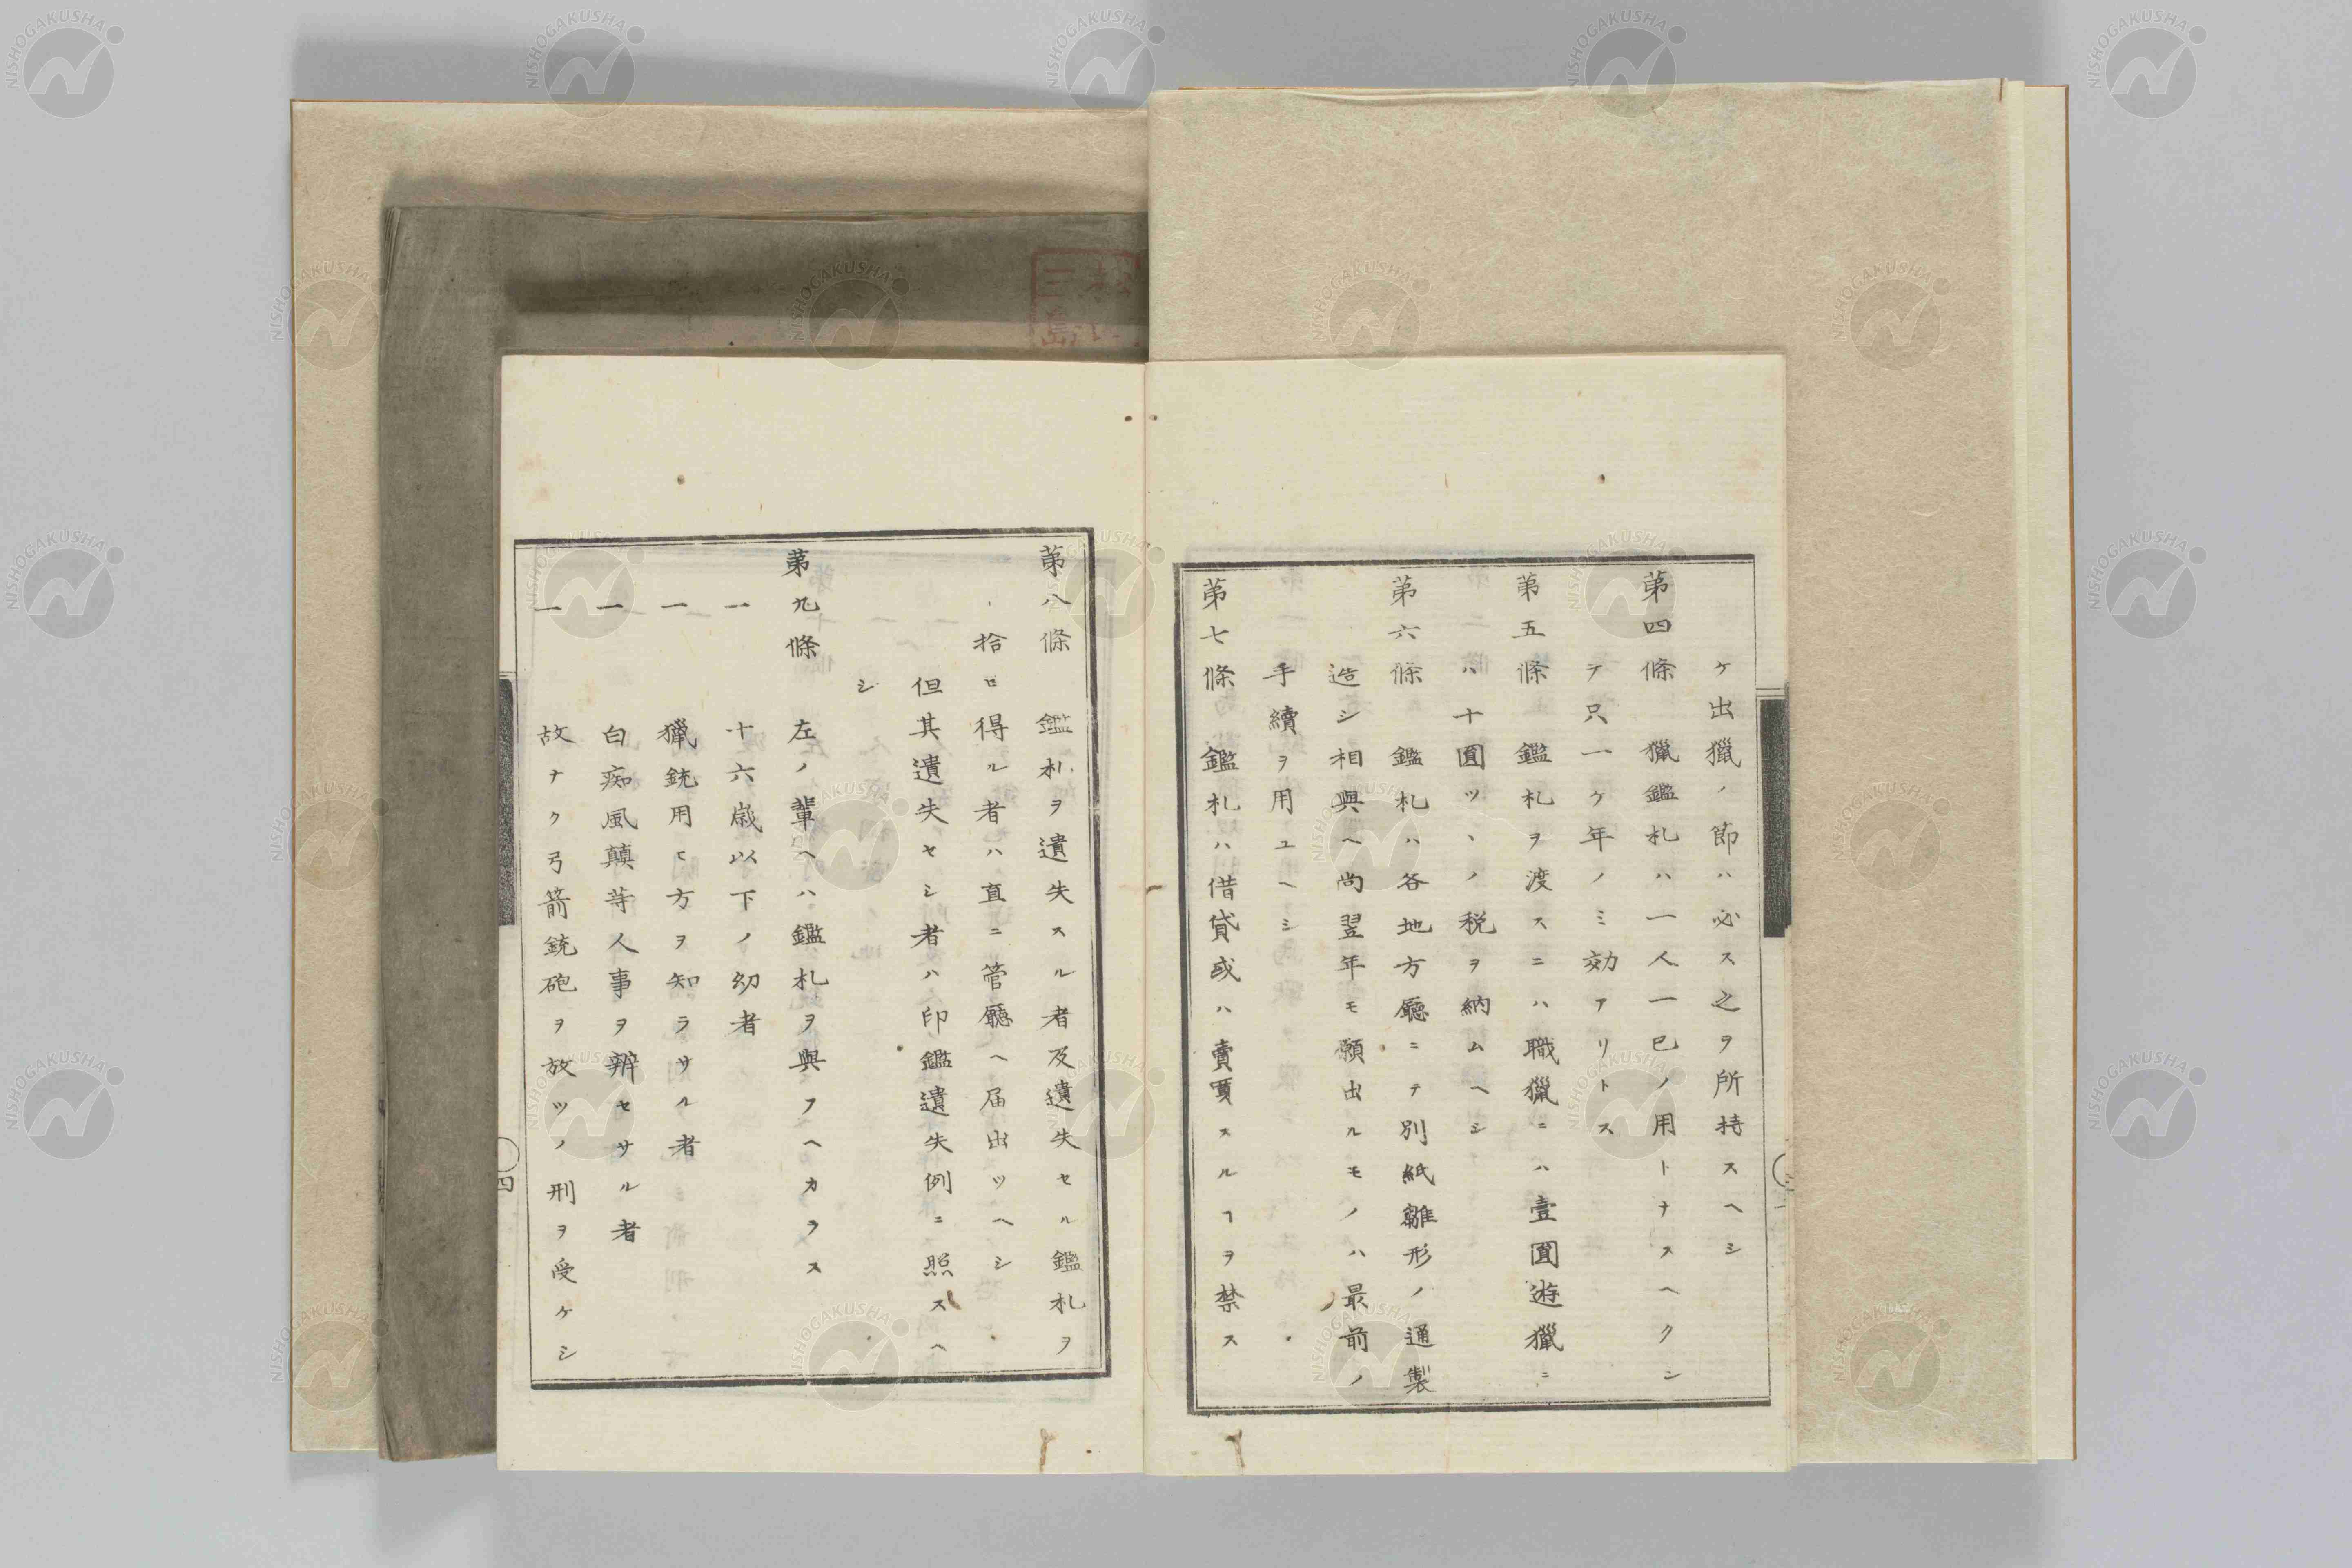 ケ出獵ノ節ハ必ス之ヲ所持スヘシ
第四條 獵鑑札ハ一人一已ノ用トナスヘクシ
テ只一ケ年ノミ効アリトス
第五條 鑑札ヲ渡スニハ職獵ニハ壹圓遊獵ニ
ハ十圓ツヽノ税ヲ納ムヘシ
第六條 鑑札ハ各地方廳ニテ別紙雛形ノ通製
造シ相與ヘ尚翌年モ願出ルモノハ最前ノ
手續ヲ用ユヘシ
第七條 鑑札ハ借貸或ハ賣買スルヿヲ禁ス
第八條 鑑札ヲ遺失スル者及遺失セル鑑札ヲ
拾ヒ得ル者ハ直ニ管廳ヘ届出ツヘシ
但其遺失セシ者ハ印鑑遺失例ニ照スヘ
シ
第九條 左ノ輩ヘハ鑑札ヲ與フヘカラス
一 十六歳以下ノ幼者
一 獵銃用ヒ方ヲ知ラサル者
一 白痴風癲等人事ヲ辨セサル者
一 故ナク弓箭銃砲ヲ放ツノ刑ヲ受ケシ
四
三島
NISHOGAKUSHA